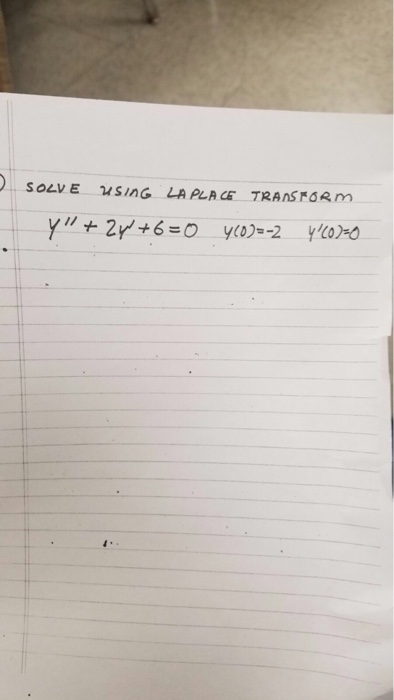 SOLVE USING LAPLACE TRANSFORM
y'' + 2y' + 6 = 0 y(0)=-2 y'(0)=0